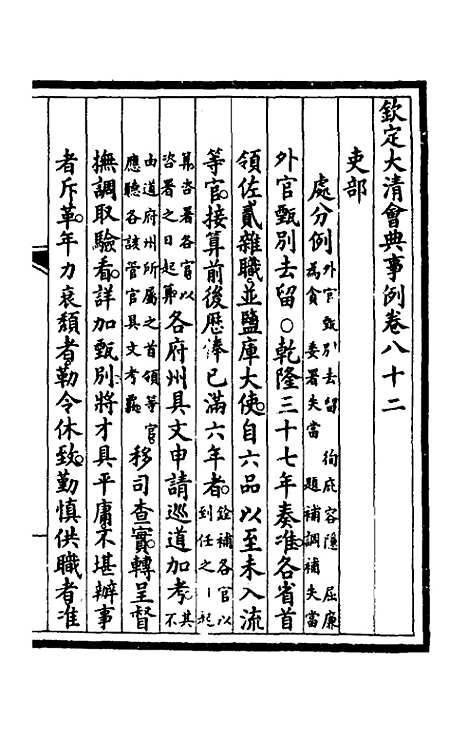 欽定大清會典事例卷八十二
吏部
處分例 外官甄別去留 徇庇容隱 屈廉為貪 委署失當 題補調補失當
外官甄別去留○乾隆三十七年奏准各省首
領佐貳雜職並鹽庫大使自六品以至未入流
等官接算前後歷俸已滿六年者銓補各官以到任之日起
算咨署各官以咨署之日起算各府州具文申請巡道加考其不
由道府州所屬之首領等官應聽各該管官具文考覈移司查實轉呈督
撫調取驗看詳加甄別將才具平庸不堪辦事
者斥革年力衰頹者勒令休致勤慎供職者准